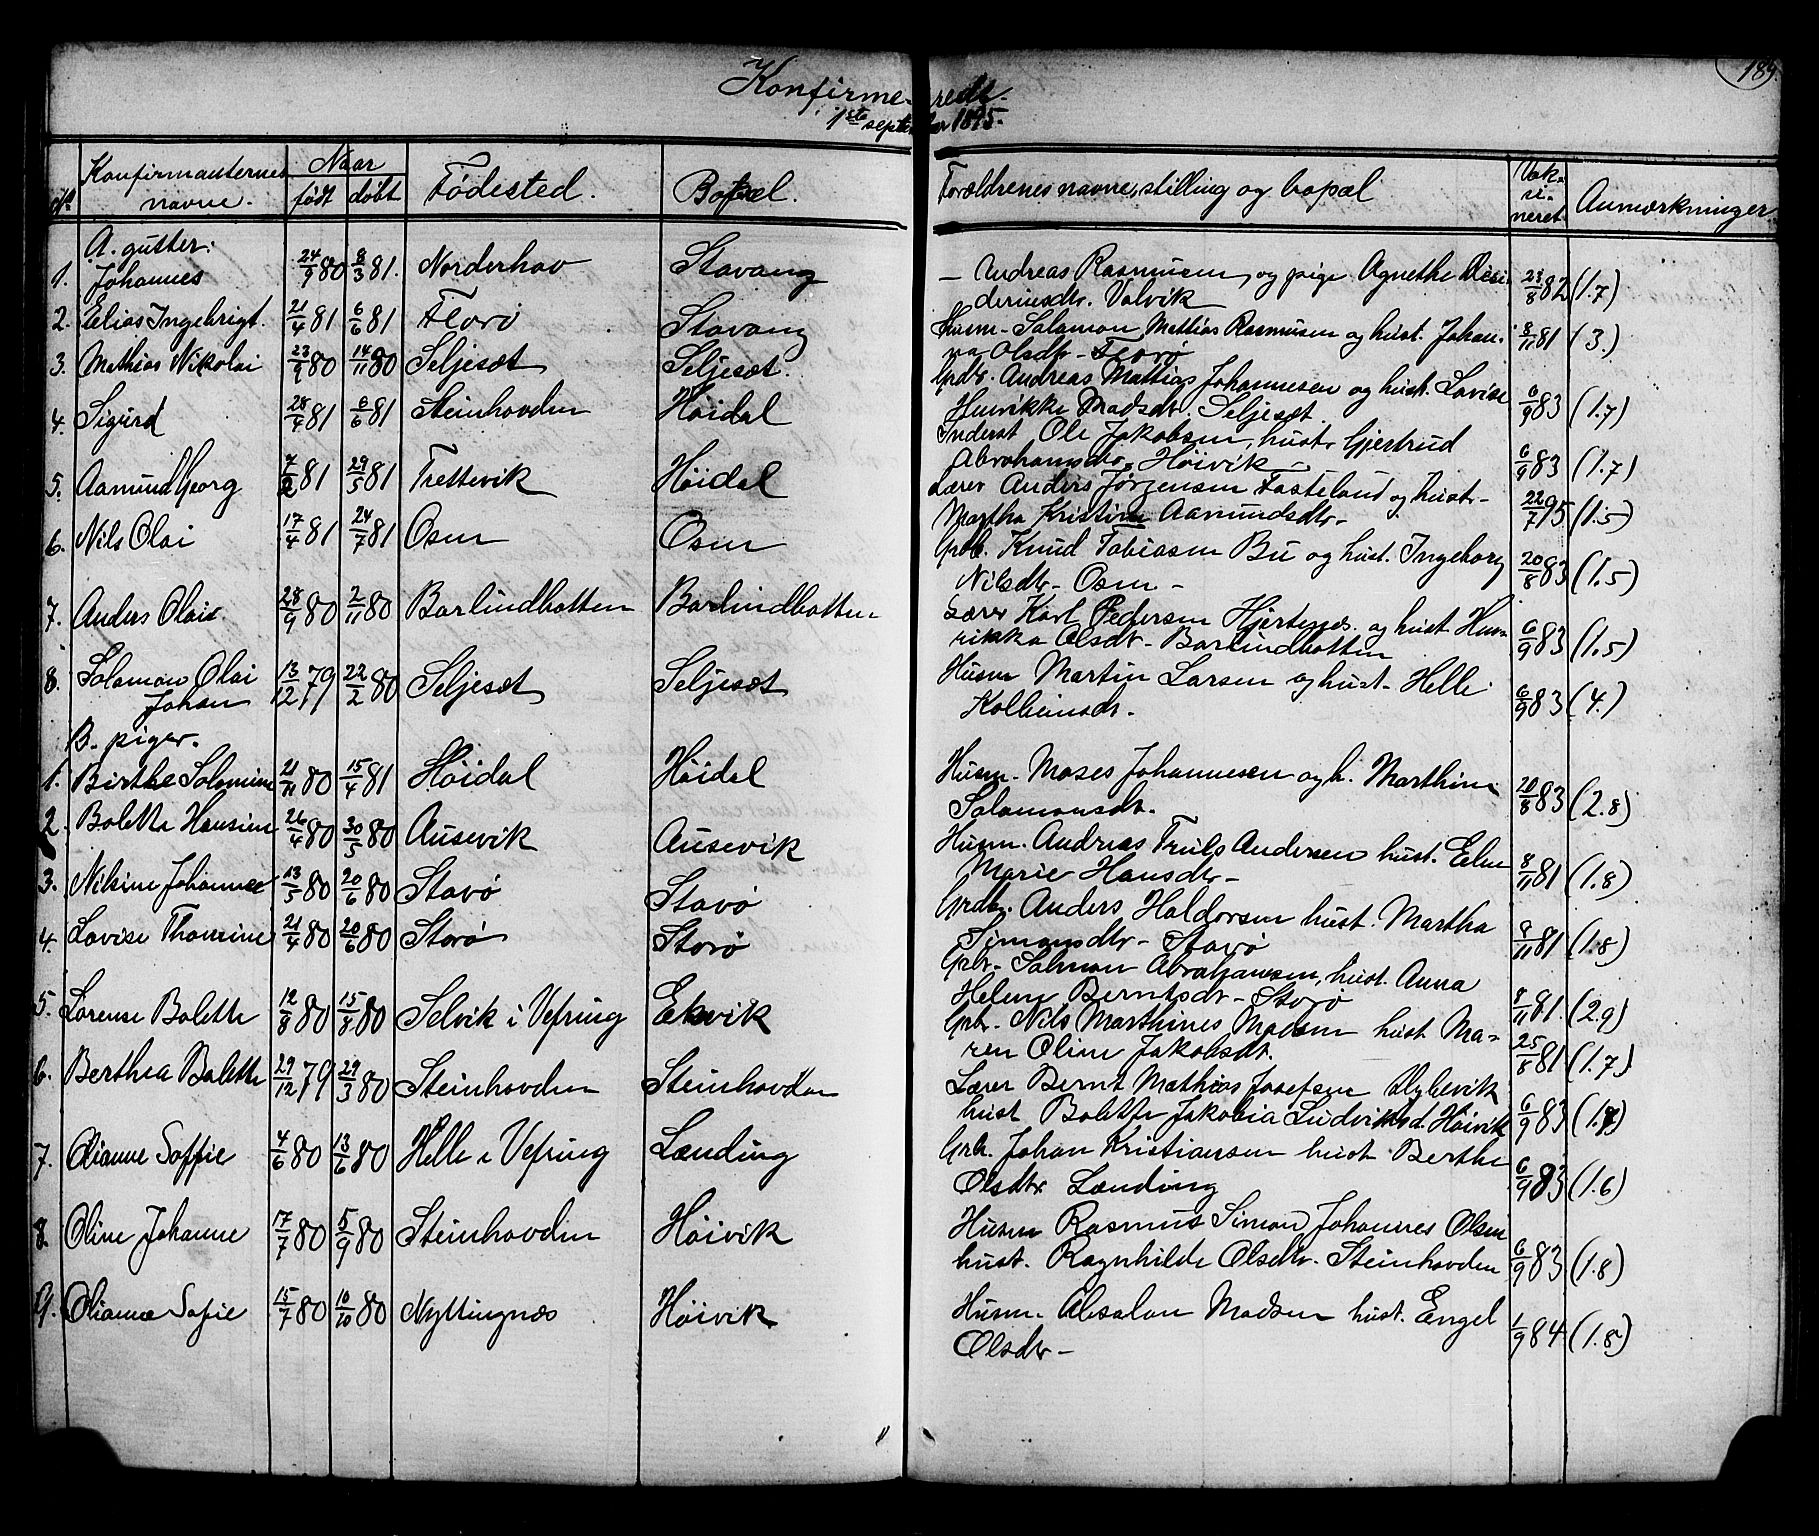 189.
Konfirmeredt
1ste september 1895.
No Konfirmanternes navne. Naar født døbt Fødested. Bopæl. Forældrenes navne, stilling og bopæl Vaksineret Anmærkninger.
A. gutter:
1. Johannes 24/9 80 8/3 81. Norderhov Stavang - Andreas Rasmusen, og pige Agnethe Desi- 23/8 82 (1.7)
deriusdtr. Valvik
2. Elias Ingebrigt. 21/4 81 6/6 81 Florö Stavang Husm- Salamon Mathias Rasmusen og hust. Johan- 8/11 81 (3.)
na Olsdtr - Florö
3. Mathias Nikolai 23/9 80 14/11 80 Seljesæt Seljesæt. Grdbr. Andreas Mattias Johannesen og hust. Lovise 6/9 83 (1.7)
Henrikke Madsdtr. Seljesæt
4. Sigurd 28/4 81 6/6 81 Steinhovden Höidal Inderst Ole Jakobsen, hust. Gjertrud 6/9 83 (1.7)
Abrahamsdtr. Höivik -
5. Aamund Georg 7/2 81 29/5 81 Trettevik Höidal Lærer Anders Jørgensen Fasteland og hustr- 22/7 95 (1.5)
Martha Kristine Aamundsdtr-
6. Nils Olai 17/4 81 24/7 81 Osen Osen Grdb. Knud Tobiasen Bu og hust. Ingeborg 20/8 83 (1.5)
Nilsdtr- Osen -
7. Anders Olai 28/9 80 2/11 80 Barlindbotten Barlindbotten Lærer Karl Pedersen Hjertenes. og hust Hen-
rikka Olsdtr- Barlindbotten 6/9 83 (1.5)
8. Salamon Olai 13/12 79 22/2 80 Seljesæt Seljesæt Husm Martin Larsen og hust- Helle
Johan Kolbeinsdtr. 6/9 83 (4.)
B. piger.
1. Birthe Salomine 21/11 80 15/4 81 Höidal Höidal Husm- Moses Johannesen og h. Marthine 20/8 83 (2.8)
Salamonsdtr.
2. Bolette Hansine 26/4 80 30/5 80 Ausevik Ausevik Husm. Andreas Truls Andersen hust. Elen
Marie Hansdtr- 8/11 81 (1.8)
3. Nilsine Johanne 13/5 80 20/6 80 Stavø Stavø Grdbr. Anders Haldorsen hust. Martha
Simonsdtr- Stavø 8/11 81 (1.8)
4. Lovise Thomine 21/4 80 20/6 80 Storø Storø Grbr- Salmon Abrahamsen, hust. Anna
Helene Berntsdtr- Storø 8/11 81. (2.9)
5. Lorense Bolette 12/8 80 15/8 80 Selvik i Vefring Ekvik Grbr. Nils Marthines Madsen hust Ma-
ren Oline Jakobsdt. 25/8 81 (1.7)
6. Berthea Bolette 29/12 79 29/3 80 Steinhovden Steinhovden Lærer Bernt Mathias Josefsen
hust Bolette Jakobia Ludviksd. Höivik 6/9 83
7. Olianne Soffie 4/6 80 13/6 80 Helle i Vefring Lænding Grbr. Johan Kristiansen hust Berthe
Olsdtr Lænding 6/9 83 (1.6)
8. Oline Johanne 17/7 80 5/9 80 Steinhovden Höivik Husm Rasmus Simon Johannes Olsen
hust. Ragnhilde Olsdtr. Steinhovden 6/9 83 (1.8)
9. Olianna Sofie 15/7 80 10/10 80 Nyttingnæs Höivik Husm. Absalon Madsen hust. Engel
Olsdtr - 1/9 84 (1.8)